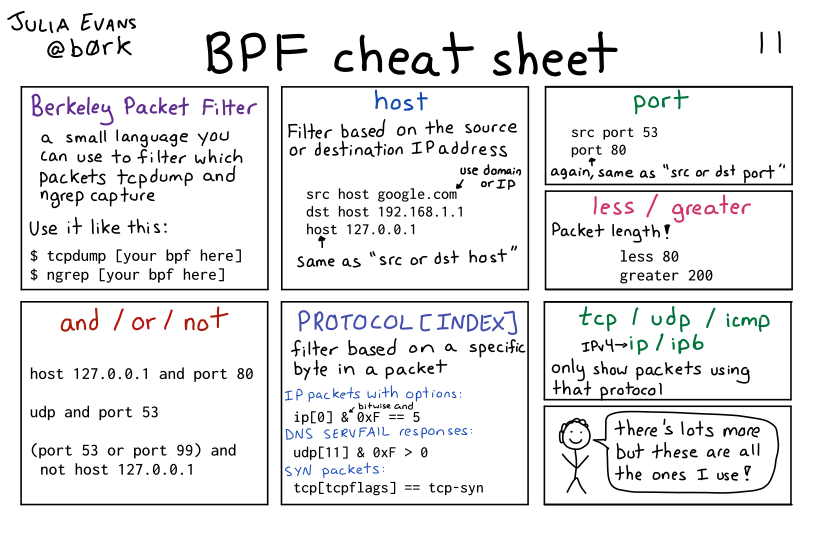 JULIA EVANS
@b0rk
BPF cheat sheet
11
Berkeley Packet Filter
a small language you
can use to filter which
packets tcpdump and
ngrep capture
Use it like this:
$ tcpdump [your bpf here]
$ ngrep [your bpf here]
host
Filter based on the source
or destination IP address
use domain
or IP
src host google.com
dst host 192.168.1.1
host 127.0.0.1
same as "src or dst host"
port
src port 53
port 80
again, same as "src or dst port"
less / greater
Packet length!
less 80
greater 200
and / or / not
host 127.0.0.1 and port 80
udp and port 53
(port 53 or port 99) and
not host 127.0.0.1
PROTOCOL [INDEX]
filter based on a specific
byte in a packet
IP packets with options:
bitwise and
ip[0] & 0xF == 5
DNS SERVFAIL responses:
udp[11] & 0xF > 0
SYN packets:
tcp[tcpflags] == tcp-syn
tcp / udp / icmp
IPv4→ip / ip6
only show packets using
that protocol
there's lots more
but these are all
the ones I use!